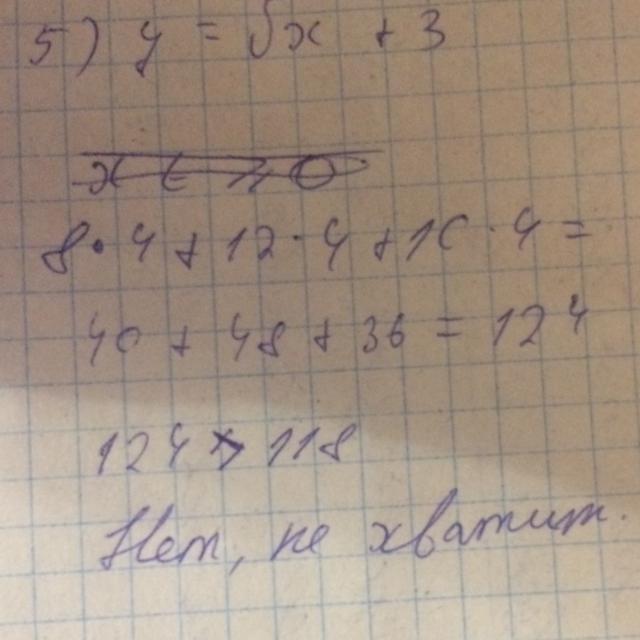 5) y = √x + 3
8·4 + 12·4 + 10·4 =
40 + 48 + 36 = 124
124 > 118
Нет, не хватит.